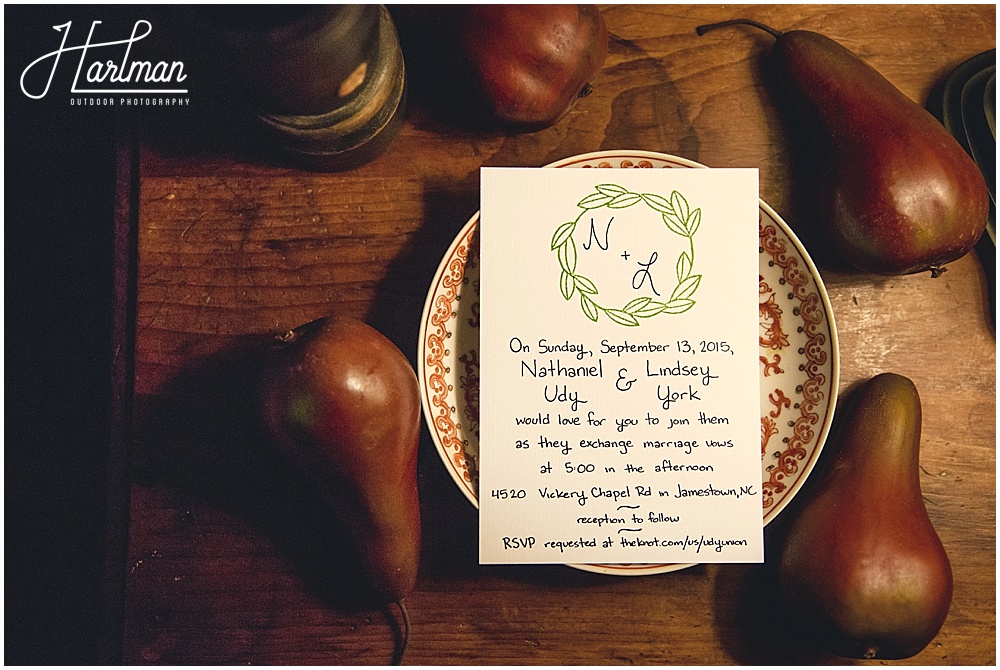 Hartman
OUTDOOR PHOTOGRAPHY
N
+
L
On Sunday, September 13, 2015,
Nathaniel & Lindsey
Udy York
would love for you to join them
as they exchange marriage vows
at 5:00 in the afternoon
4520 Vickery Chapel Rd in Jamestown, NC
reception to follow
RSVP requested at theknot.com/us/udyunion